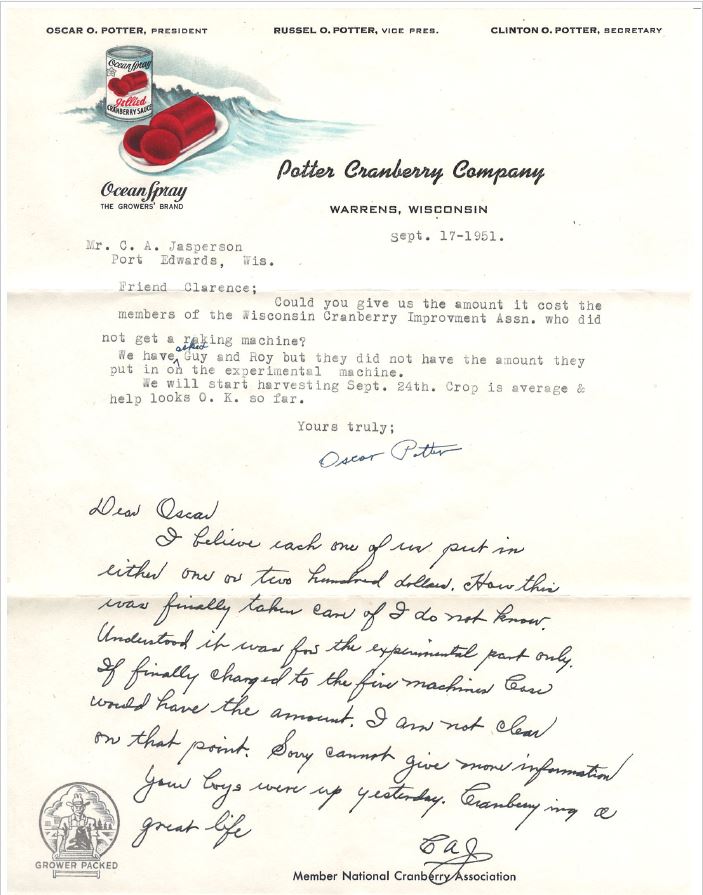 OSCAR O. POTTER, PRESIDENT
RUSSEL O. POTTER, VICE PRES.
CLINTON O. POTTER, SECRETARY
Ocean Spray
Jellied
CRANBERRY SAUCE
Ocean Spray
THE GROWERS' BRAND
Potter Cranberry Company
WARRENS, WISCONSIN
Sept. 17-1951.
Mr. C. A. Jasperson
Port Edwards, Wis.
Friend Clarence;
Could you give us the amount it cost the
members of the Wisconsin Cranberry Improvment Assn. who did
not get a raking machine?
asked
We have Guy and Roy but they did not have the amount they
put in on the experimental machine.
We will start harvesting Sept. 24th. Crop is average &
help looks O. K. so far.
Yours truly;
Oscar Potter
Dear Oscar
I believe each one of us put in
either one or two hundred dollars. How this
was finally taken care of I do not know.
Understood it was for the experimental part only.
If finally charged to the five machines Case
would have the amount. I am not clear
on that point. Sorry cannot give more information
Your boys were up yesterday. Cranberrying a
great life
CAJ
GROWER PACKED
Member National Cranberry Association